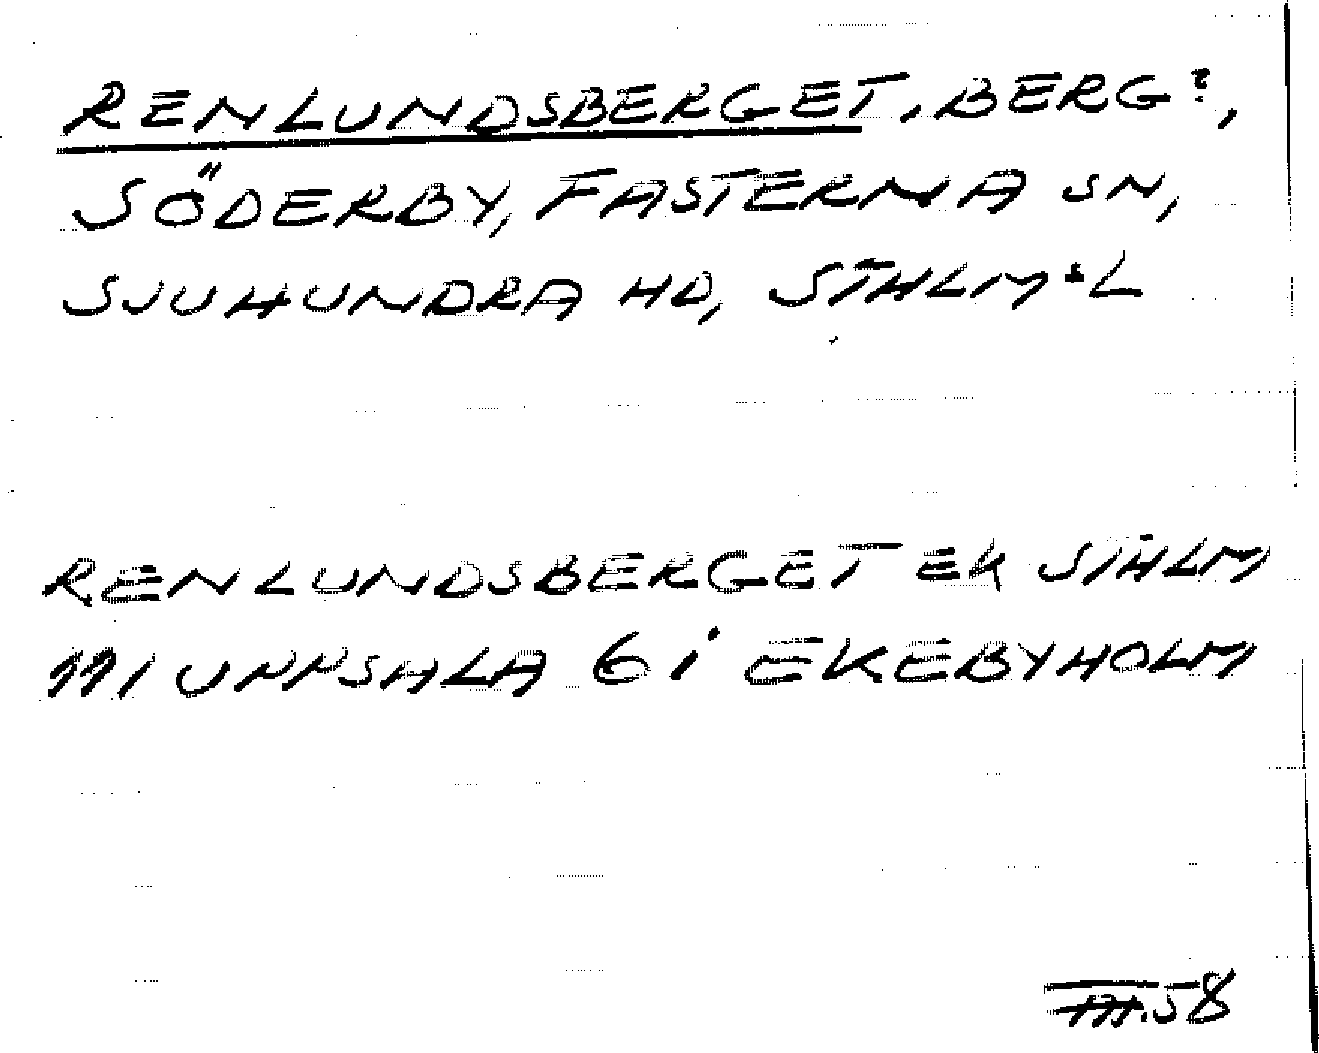 RENLUNDSBERGET, BERG?,
SÖDERBY, FASTERNA SN,
SJUHUNDRA HD, STHLM:L
RENLUNDSBERGET EK STHLM
111 UPPSALA 6 i EKEBYHOLM
58